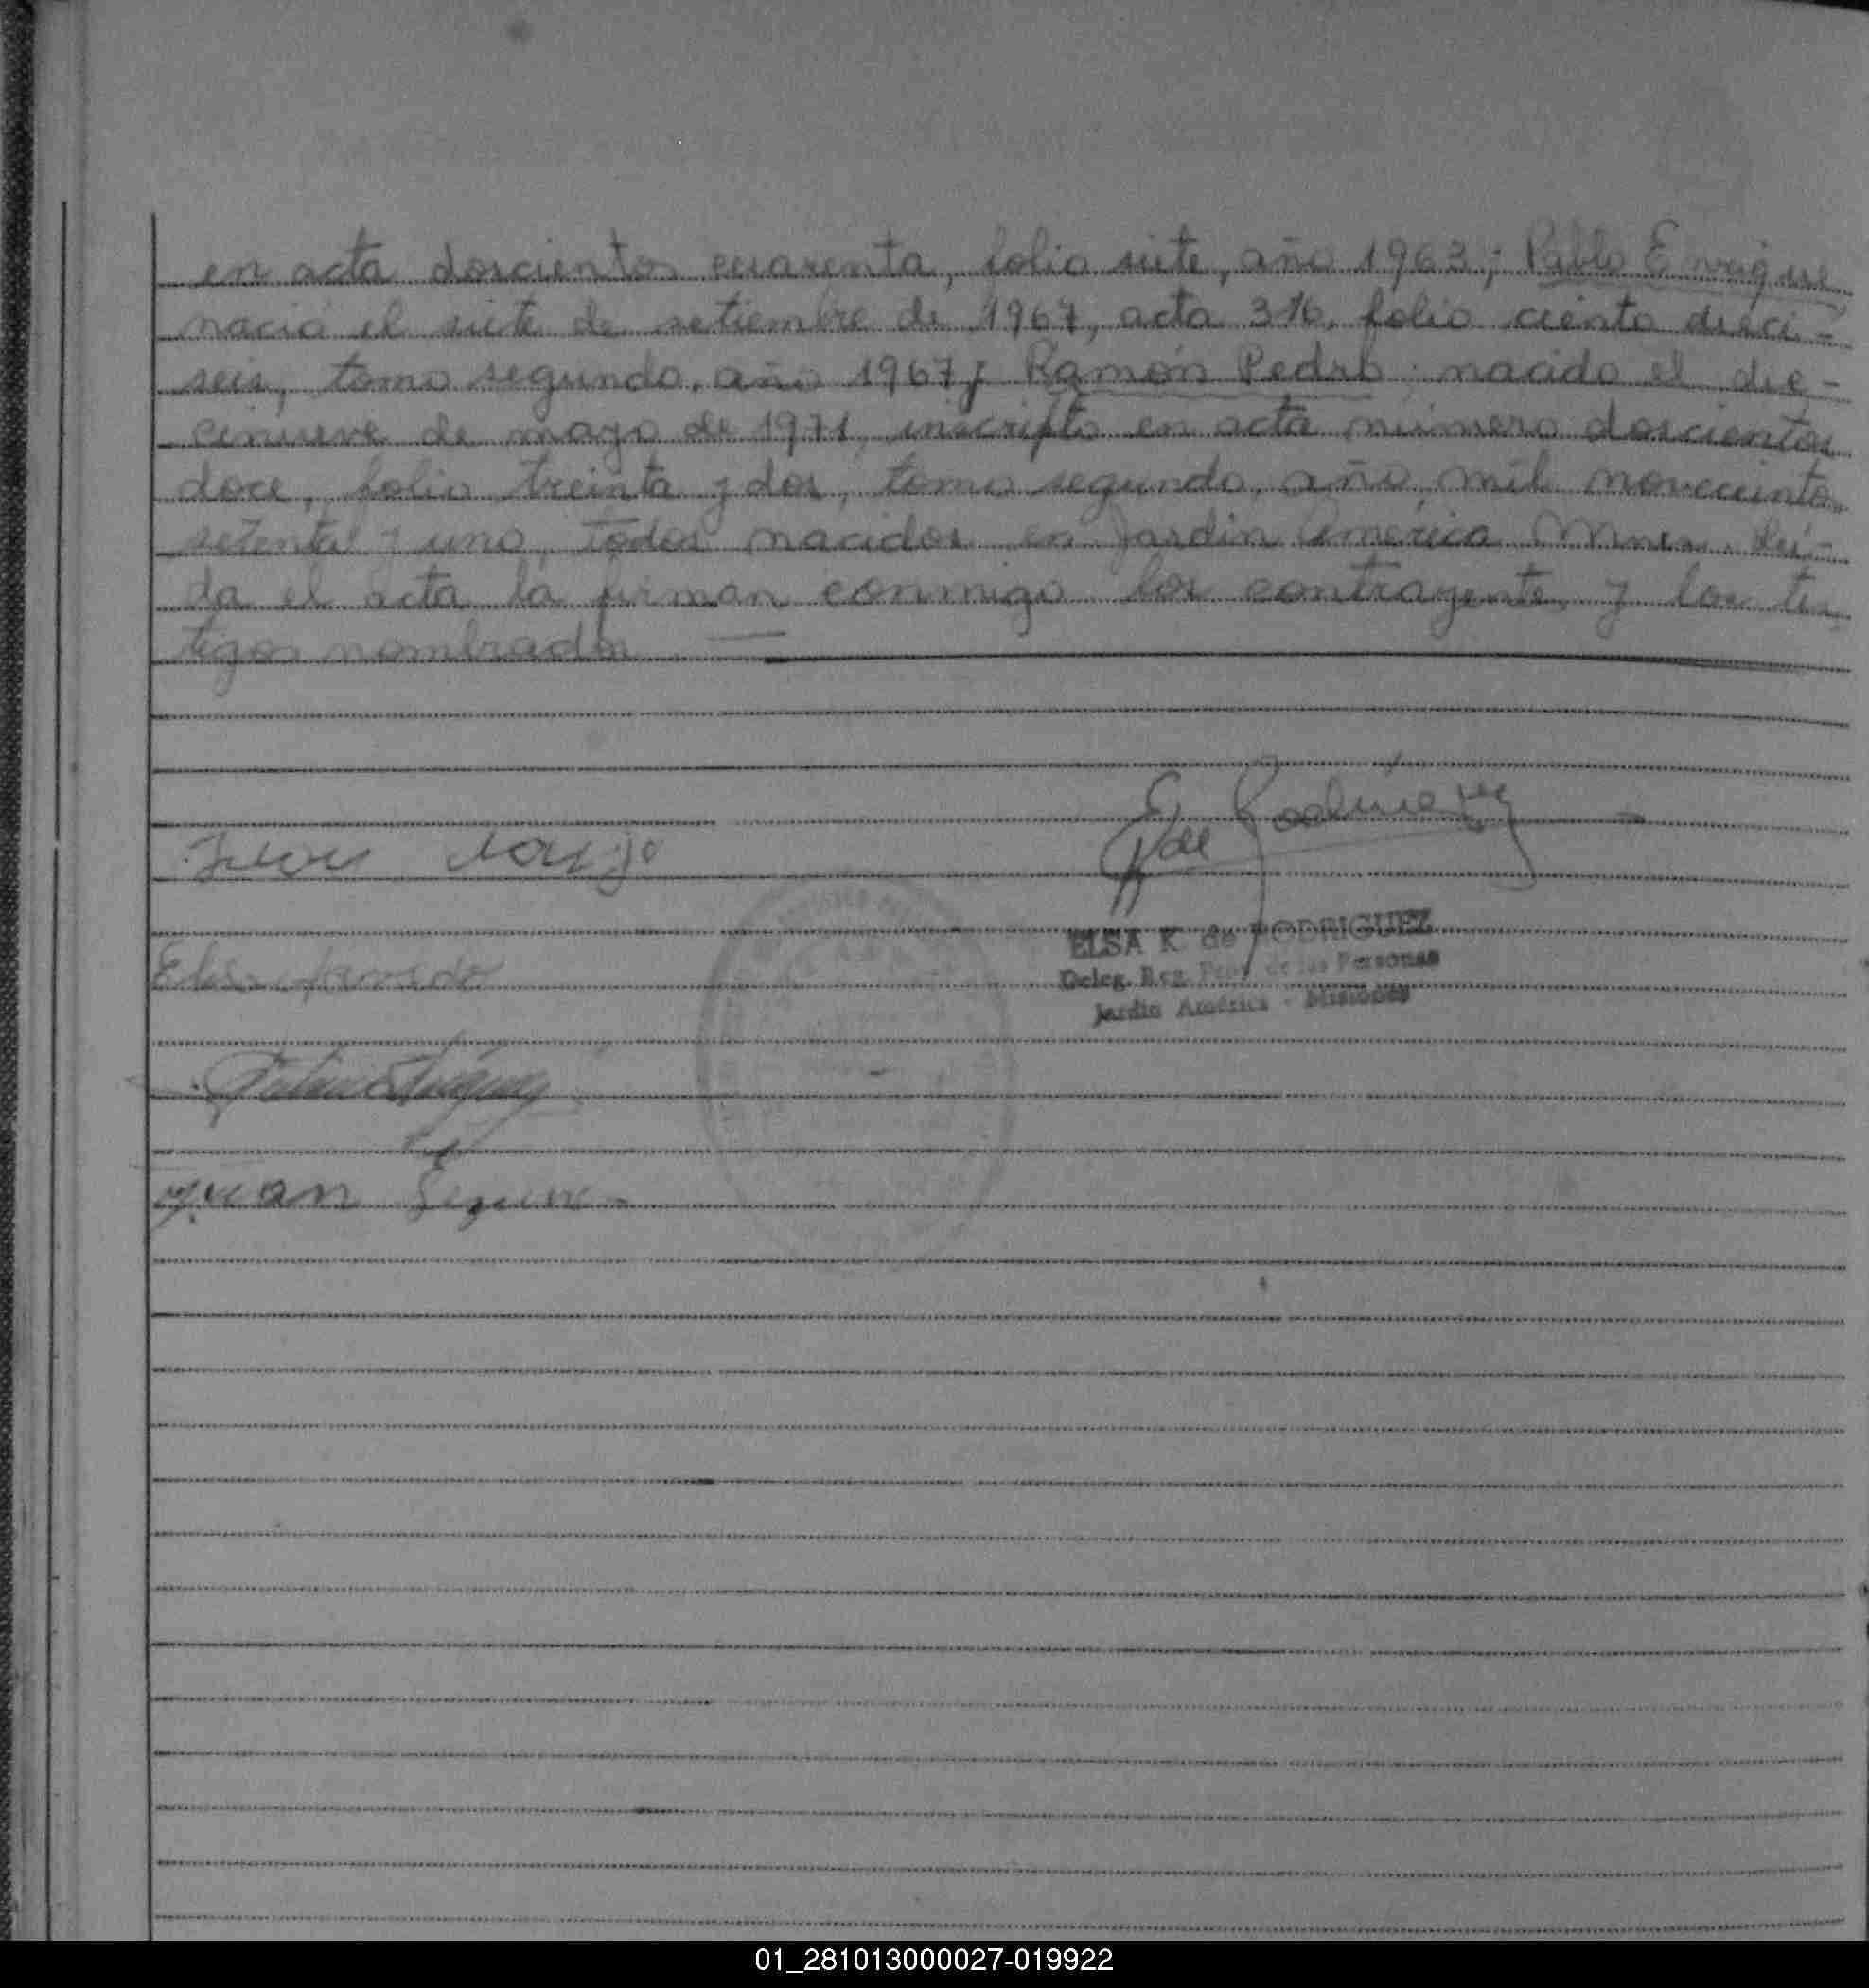 en acta doscientos cuarenta, folio siete, año 1963; Pablo Enrique
nació el siete de setiembre de 1967, acta 316, folio ciento dieci-
seis, tomo segundo, año 1967; Ramón Pedro nacido el die-
cinueve de mayo de 1971, inscripto en acta número doscientos
doce, folio treinta y dos, tomo segundo, año mil novecientos
setenta y uno, todos nacidos en Jardín América Mnes. Leí-
da el acta la firman conmigo los contrayentes y los tes
tigos nombrados.
E de Rodriguez
ELSA K. de RODRIGUEZ
Deleg. Reg. Prov. de las Personas
Jardín América - Misiones
Juan
01_281013000027-019922